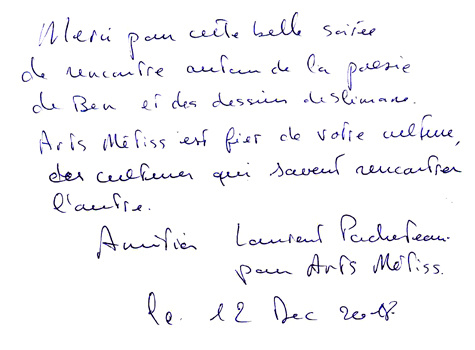 Merci pour cette belle soirée
de rencontre autour de la poesie
de Ben et des dessins de Slimane.
Arts Métiss est fier de votre culture,
des cultures qui savent rencontrer
l'autre.
Amitiés Laurent
pour Arts Métiss.
le 12 Dec